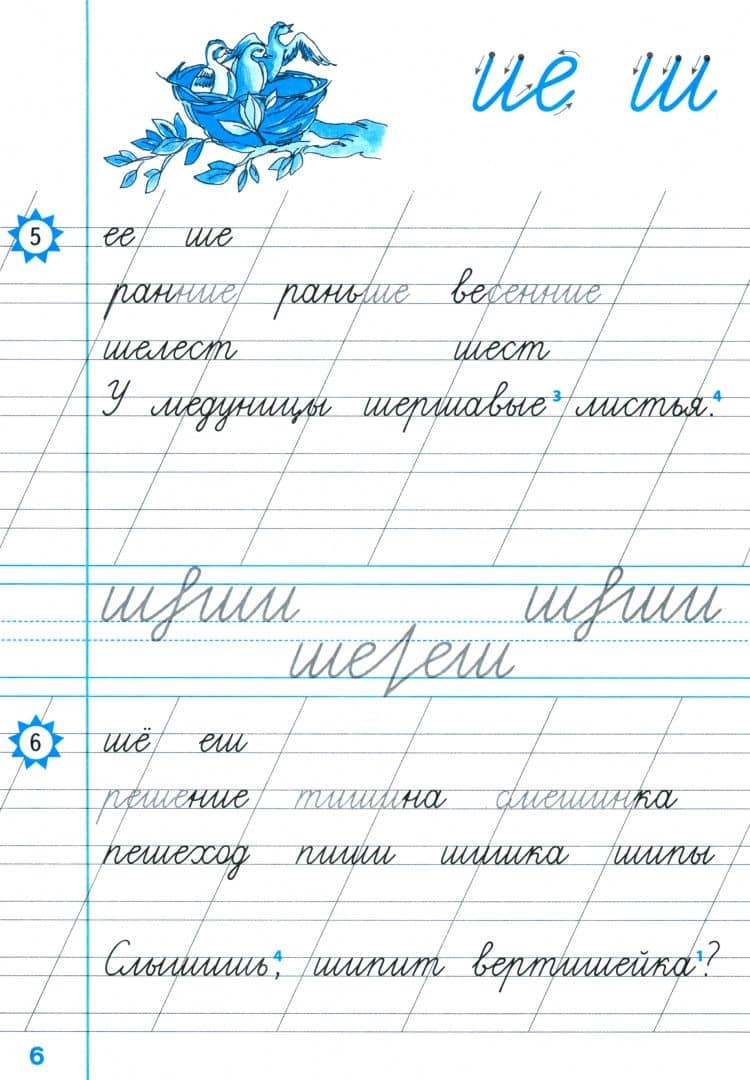 ие ш
5
ее ше
ранние раньше весенние
шелест шест
У медуницы шершавые³ листья.⁴
ше еш
6
шё еш
решение тишина смешинка
пешеход пиши шишка шипы
Слышишь,⁴ шипит вертишейка¹?
6